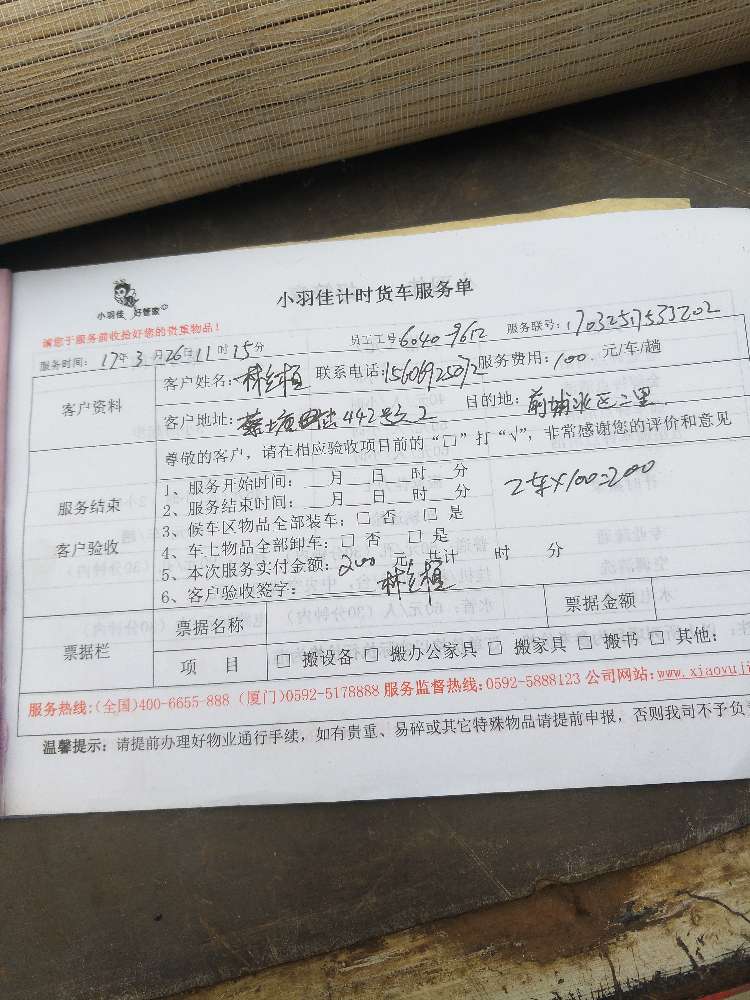 小羽佳 好管家
小羽佳计时货车服务单
请您于服务前收拾好您的贵重物品！
服务时间：17年3月26日11时15分 员工工号6040-9612 服务联号：17032517533202
客户资料
客户姓名：林 联系电话：15606925072 服务费用：100 元/车/趟
客户地址：442号之2 目的地：前埔北区二里
尊敬的客户，请在相应验收项目前的“□”打“√”，非常感谢您的评价和意见
服务结束
客户验收
1、服务开始时间：__月__日__时__分
2、服务结束时间：__月__日__时__分
2车×100=200
3、候车区物品全部装车：□ 否 □ 是
4、车上物品全部卸车：□ 否 □ 是
5、本次服务实付金额：200 元，共计 时 分
6、客户验收签字：林
票据栏
票据名称 票据金额
项 目 □ 搬设备 □ 搬办公家具 □ 搬家具 □ 搬书 □ 其他：
服务热线：(全国)400-6655-888 (厦门)0592-5178888 服务监督热线：0592-5888123 公司网站：www.xiaoyuji
温馨提示：请提前办理好物业通行手续，如有贵重、易碎或其它特殊物品请提前申报，否则我司不予负